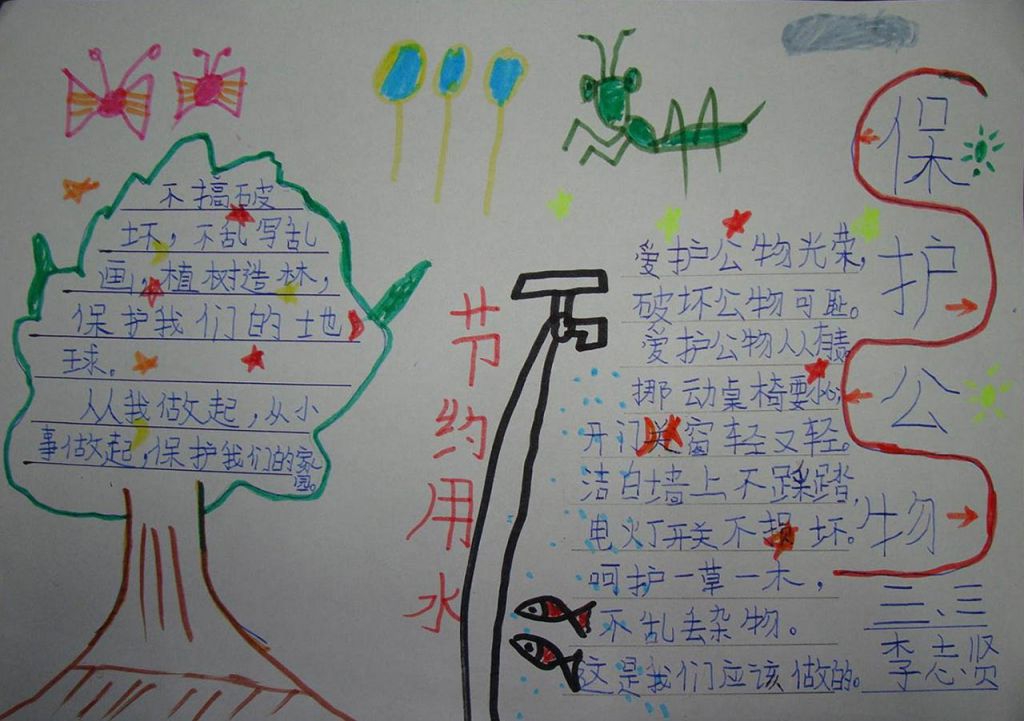 不搞破
坏，不乱写乱
画，植树造林，
保护我们的地
球。
从我做起，从小
事做起，保护我们的家
园。
节约用水
爱护公物光荣，
破坏公物可耻。
爱护公物人人有责
挪动桌椅要小心，
开门关窗轻又轻。
洁白墙上不踩踏，
电火灯开关不损坏。
呵护一草一木，
不乱丢杂物。
这是我们应该做的。
保护公物
三、三
李志贤